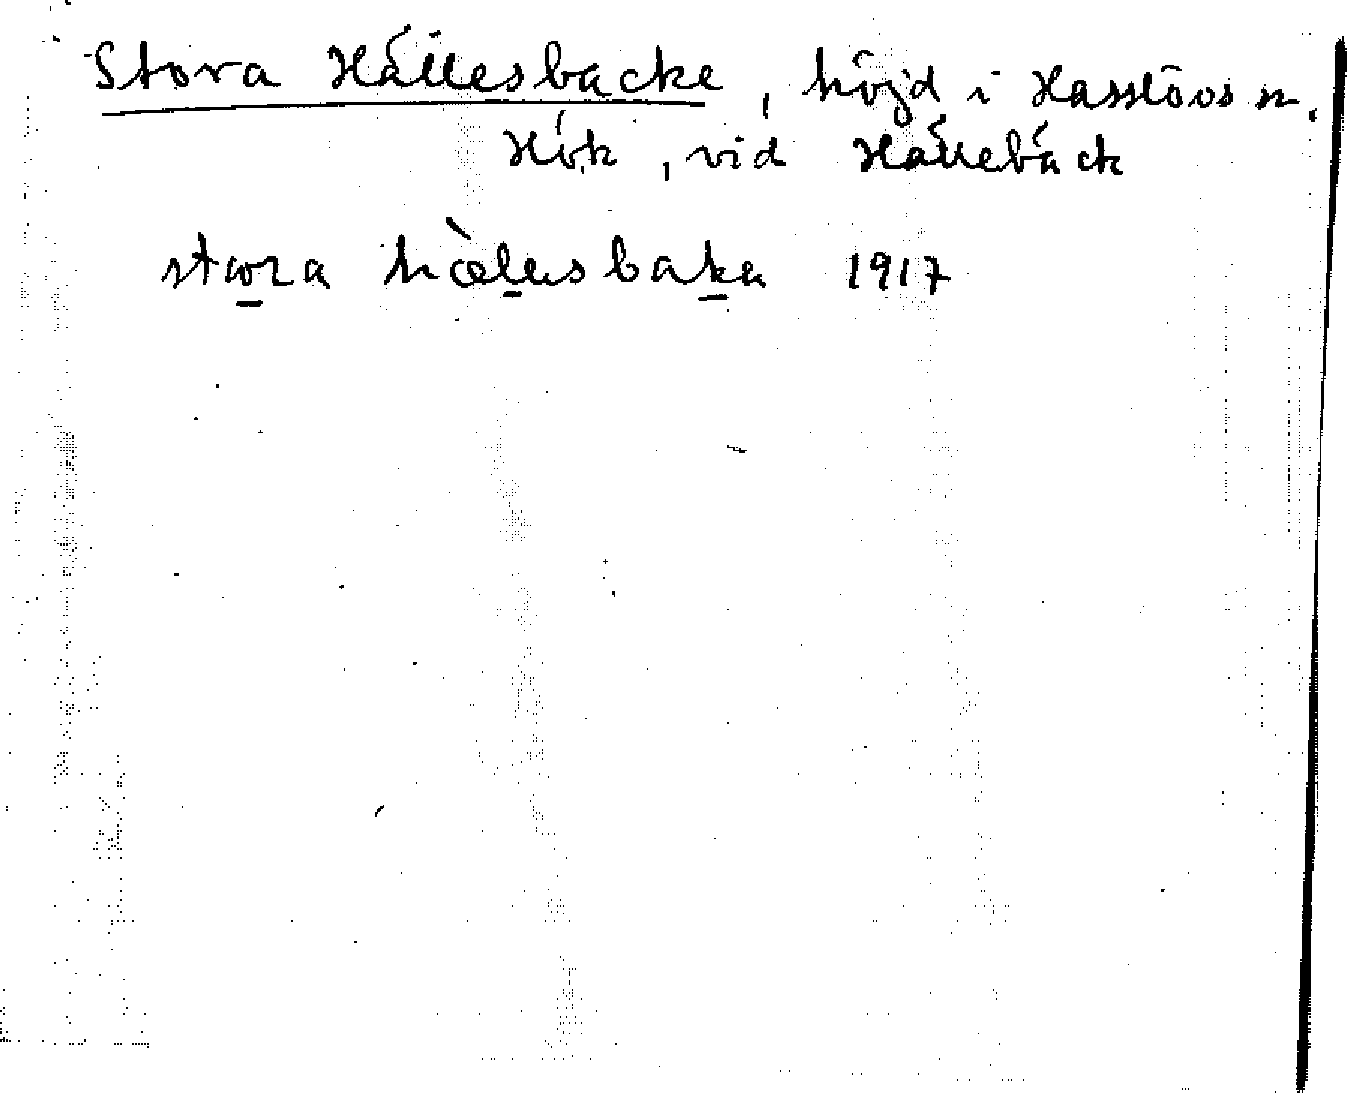 Stora Hällesbacke, höjd i Hasslövs sn.
Hök, vid Hällebäck
stωra hæ̀lesbaka 1917